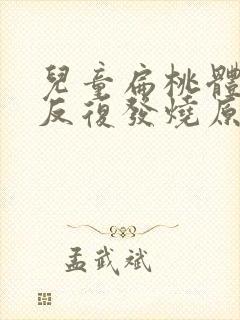 兒童扁桃體
反復發燒原
孟武斌